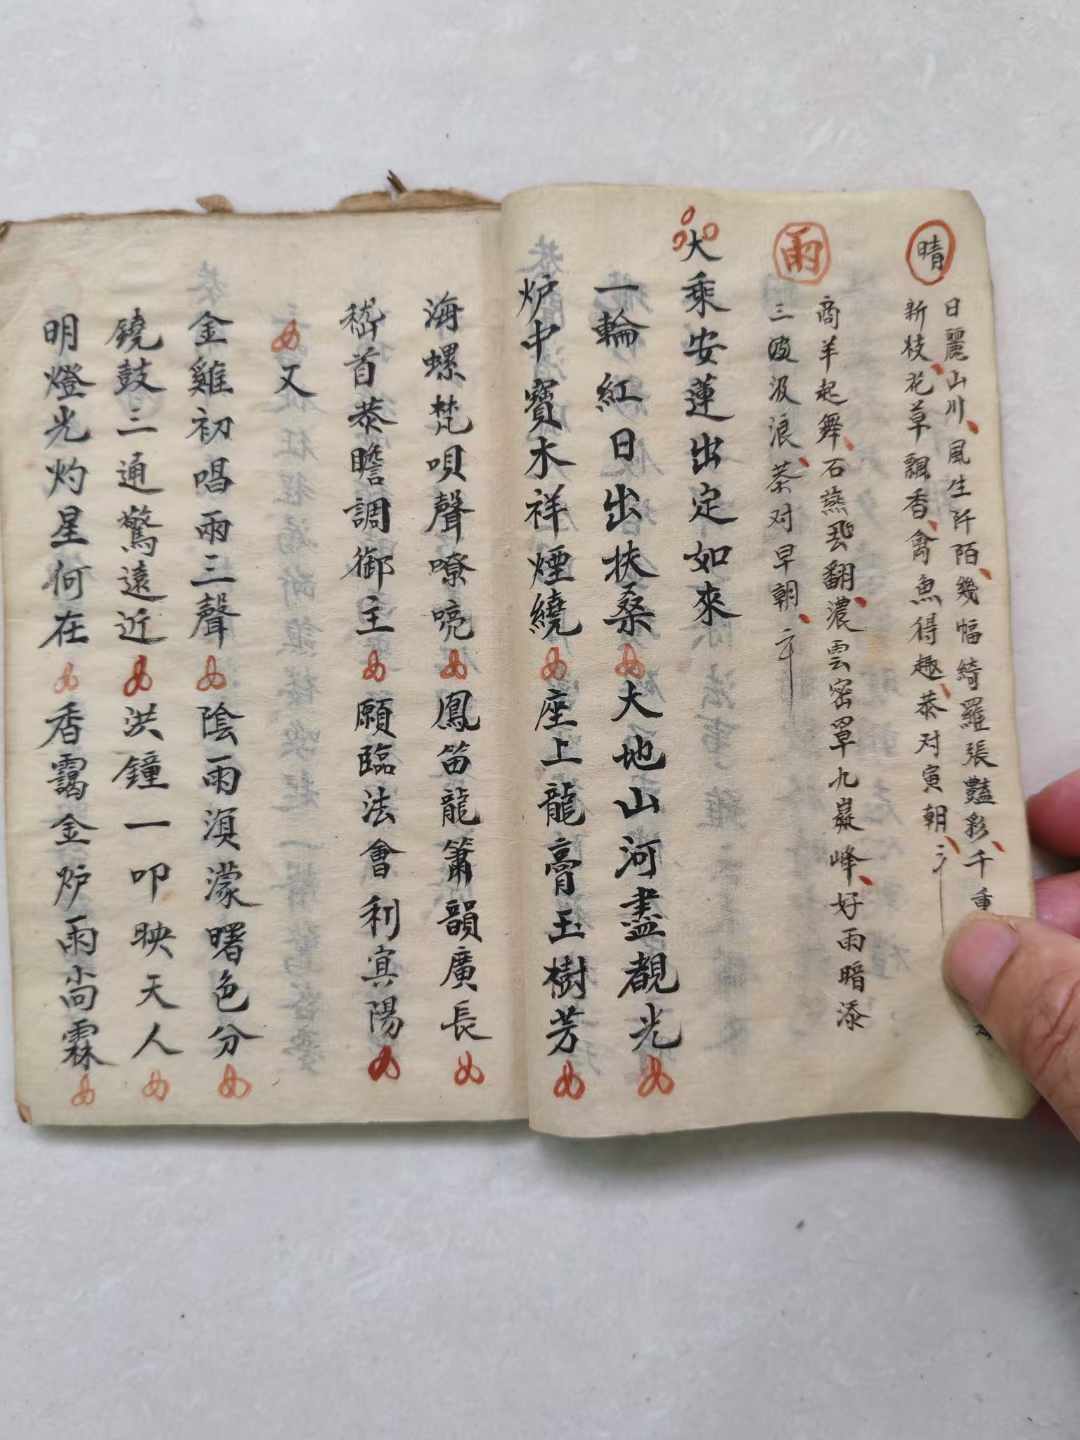 晴
日麗山川風生阡陌幾幅綺羅張豔彩千重
新枝花草飄香禽魚得趣恭对寅朝
雨
商羊起舞石燕飛翻濃雲密罩九嶷峰好雨暗添
三波汲浪恭对早朝
大乘安蓮出定如來
一輪紅日出扶桑大地山河盡覩光
炉中寶木祥煙繞座上龍膏玉樹芳
海螺梵唄聲嘹喨鳳笛龍簫韻廣長
嵇首恭瞻調御主願臨法會利冥陽
又
金雞初唱兩三聲陰雨溟濛曙色分
鐃鼓三通驚遠近洪鐘一叩映天人
明燈光灼星何在香靄金炉雨尚霖